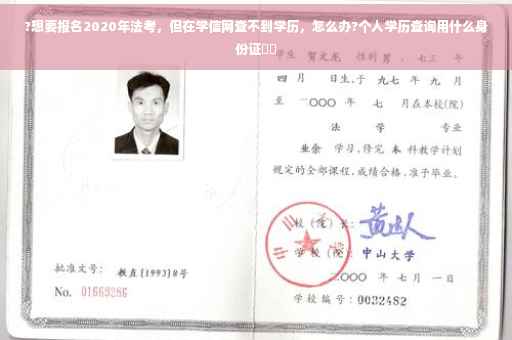 ?想要报名2020年法考，但在学信网查不到学历，怎么办?个人学历查询用什么身
份证
学生 贺文龙 性别 男 ，七三 年
四 月 日生，于 九七 年 九 月
至 二〇〇〇 年 七 月在本校(院)
法 学 专业
业余 学习，修完 本 科教学计划
规定的全部课程，成绩合格，准予毕业。
校 (院) 长：
学 校 (院)： 中山大学
批准文号： 教直[1993]8号
二〇〇〇 年 七 月 一 日
No. 01669286
学校编号：0032482